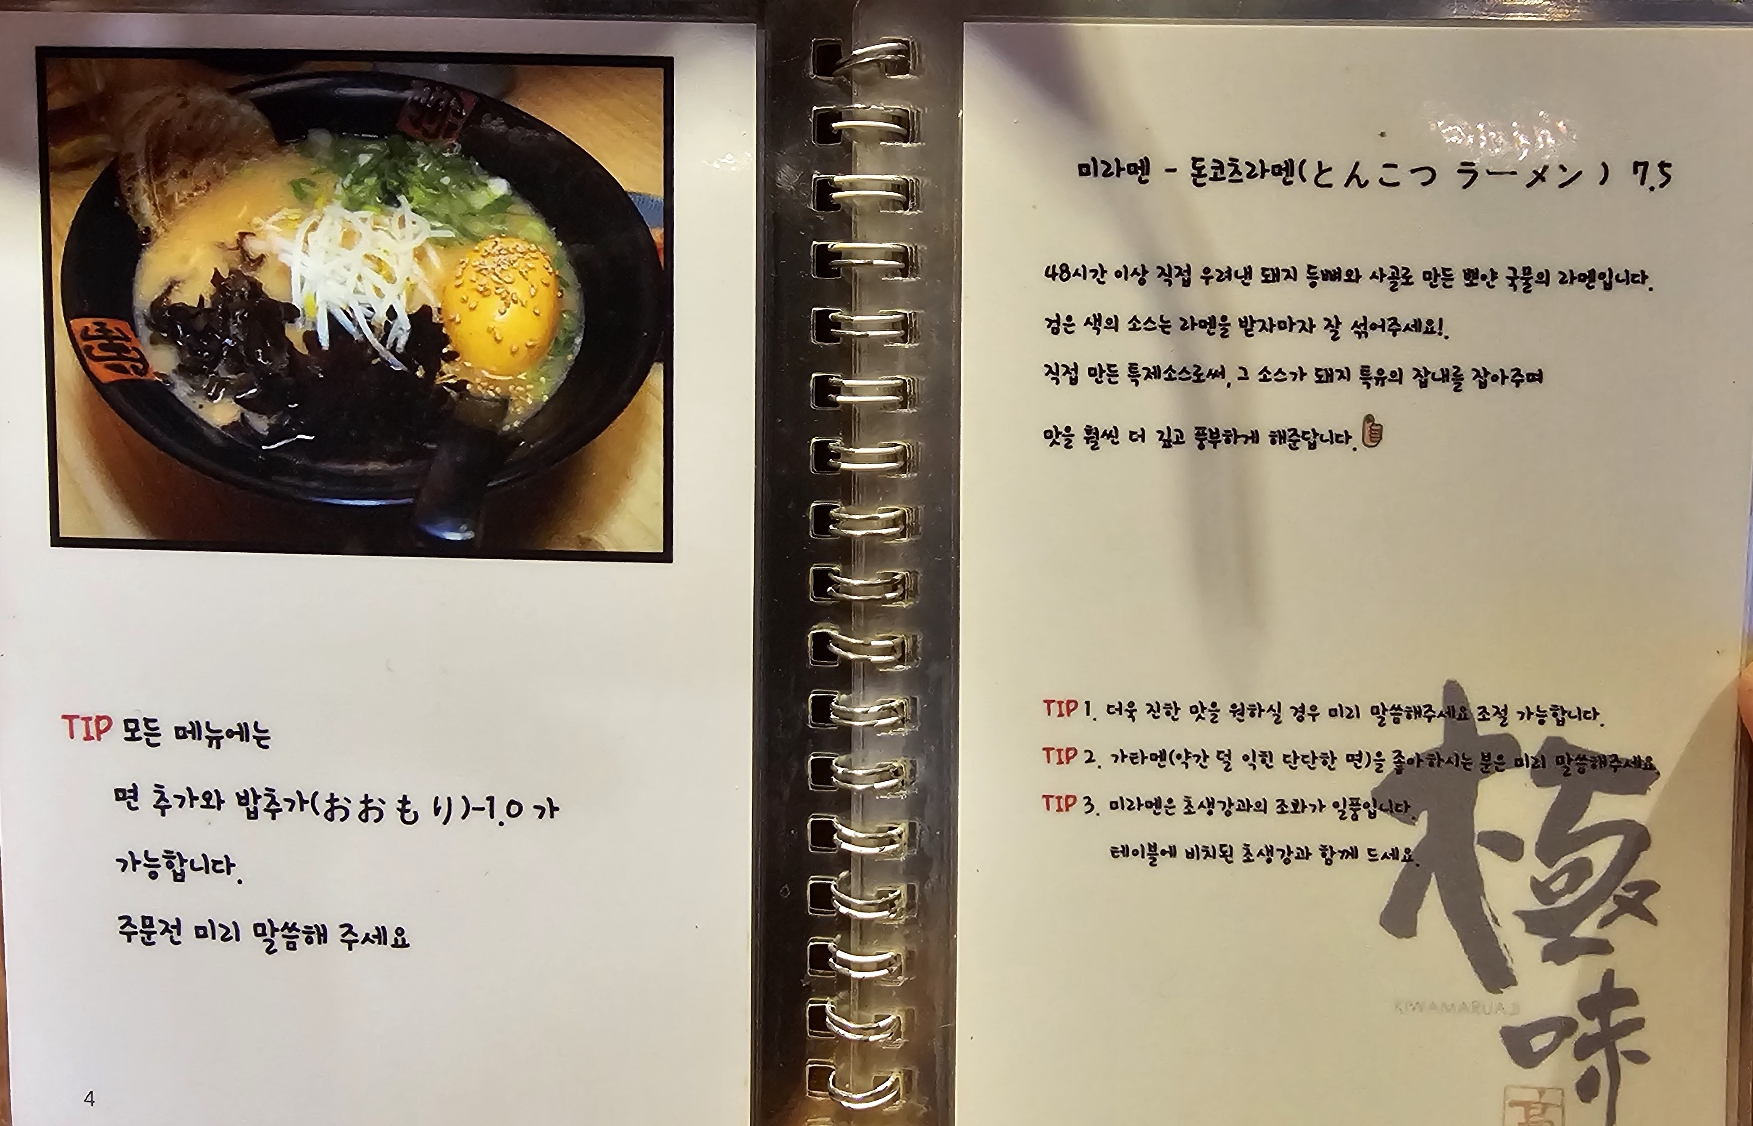 TIP 모든 메뉴에는
면 추가와 밥추가(おおもり)-1.0 가
가능합니다.
주문전 미리 말씀해 주세요
4
미라멘 - 돈코츠라멘(とんこつ ラーメン) 7.5
48시간 이상 직접 우려낸 돼지 등뼈와 사골로 만든 뽀얀 국물의 라멘입니다.
검은 색의 소스는 라멘을 받자마자 잘 섞어주세요!.
직접 만든 특제소스로써, 그 소스가 돼지 특유의 잡내를 잡아주며
맛을 훨씬 더 깊고 풍부하게 해준답니다.
TIP 1. 더욱 진한 맛을 원하실 경우 미리 말씀해주세요 조절 가능합니다.
TIP 2. 가타멘(약간 덜 익힌 단단한 면)을 좋아하시는 분은 미리 말씀해주세요.
TIP 3. 미라멘은 초생강과의 조화가 일품입니다.
테이블에 비치된 초생강과 함께 드세요.
極味
KIWAMARUAJI